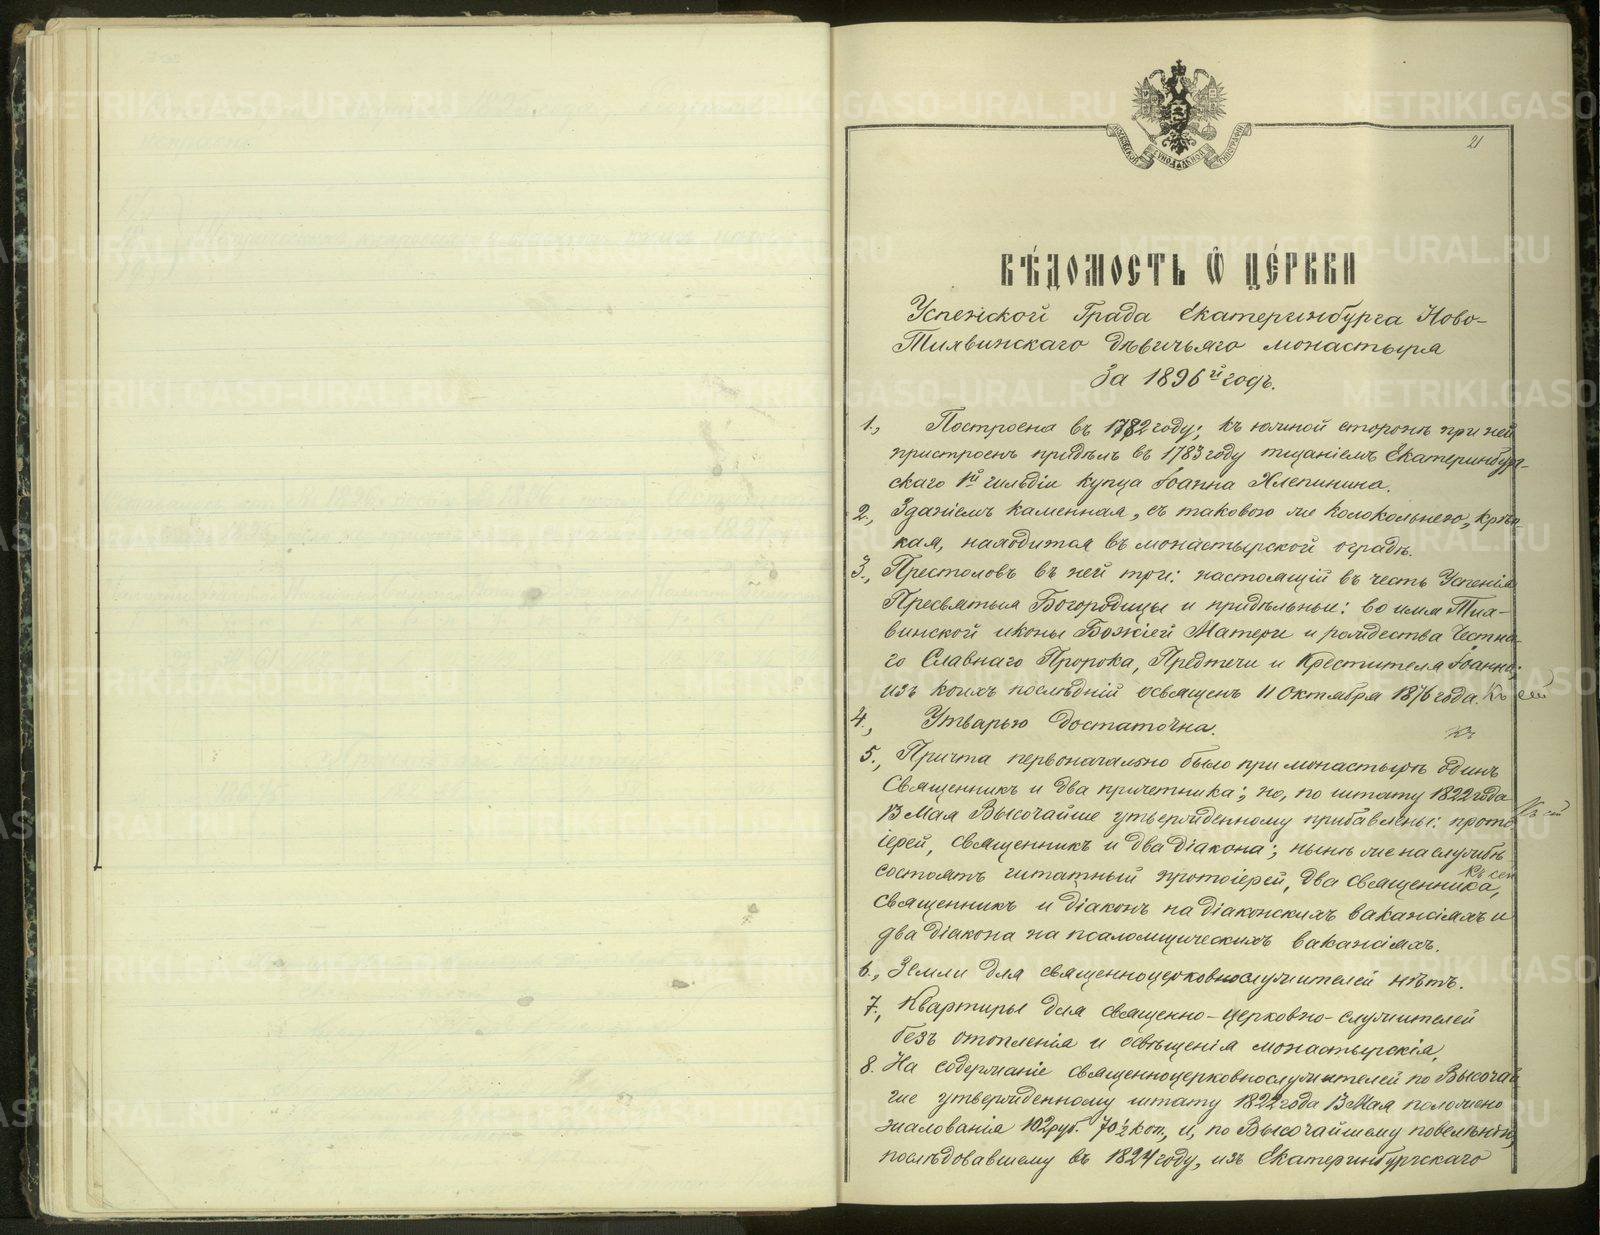 21
МОСКОВСКОЙ СѴНОДАЛЬНОЙ ТИПОГРАФІИ
ВѢ́ДОМОСТЬ Ѽ ЦЕ́РКВИ
Успенской Града Екатеринбурга Ново-
Тихвинскаго дѣвичьяго монастыря
За 1896й годъ.
1., Построена въ 1782 году; къ южной сторонѣ при ней
пристроенъ придѣлъ въ 1783 году тщаніемъ Екатеринбург-
скаго 1й гильдіи купца Іоанна Хлепинина.
2., Зданіемъ каменная, съ таковою же колокольнею, крѣп-
кая, находится въ монастырской оградѣ.
3., Престоловъ въ ней три: настоящій въ честь Успенія
Пресвятыя Богородицы и придѣльные: во имя Тих-
винской иконы Божіей Матери и рождества Честна-
го Славнаго Пророка, Предтечи и Крестителя Іоанна;
изъ коихъ послѣдній освященъ 11 Октября 1876 года. Къ сей
4., Утварью достаточна.
къ
5., Причта первоначально было при монастырѣ одинъ
Священникъ и два причетника; но, по штату 1822 года
13 Мая Высочайше утвержденному прибавлены: прото Къ сей
іерей, священникъ и два діакона; нынѣ же на службѣ
состоятъ штатный протоіерей, два священника, Къ сей
священникъ и діаконъ на діаконскихъ вакансіяхъ и
два діакона на псаломщическихъ вакансіяхъ.
6., Земли для священноцерковнослужителей нѣтъ.
7., Квартиры для священно-церковно-служителей
безъ отопленія и освѣщенія монастырскія.
8. На содержаніе священноцерковнослужителей по Высочай
ше утвержденному штату 1822 года 13 Мая положено
жалованія 102 руб. 70½ коп., и, по Высочайшему повелѣнію,
послѣдовавшему въ 1824 году, изъ Екатеринбургскаго
METRIKI.GASO-URAL.RU